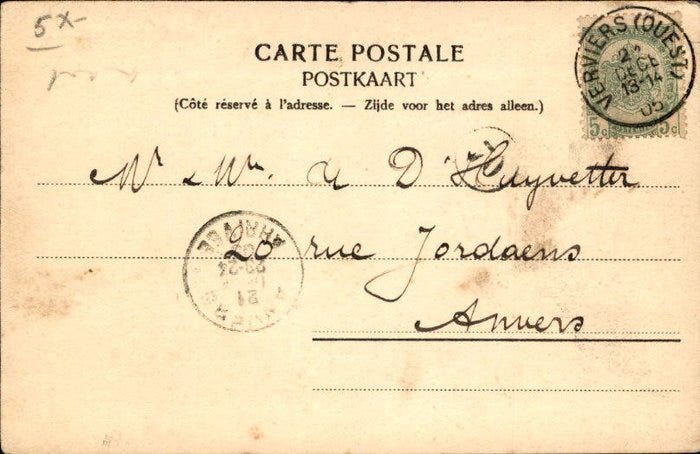 5x-
CARTE POSTALE
POSTKAART
(Côté réservé à l'adresse. — Zijde voor het adres alleen.)
VERVIERS (OUEST)
DECE
13-14
05
5c 5c
Mr & Mme de D'Huyvetter
20 rue Jordaens
Anvers
ANVERS
21
23-24
ARRIVÉE